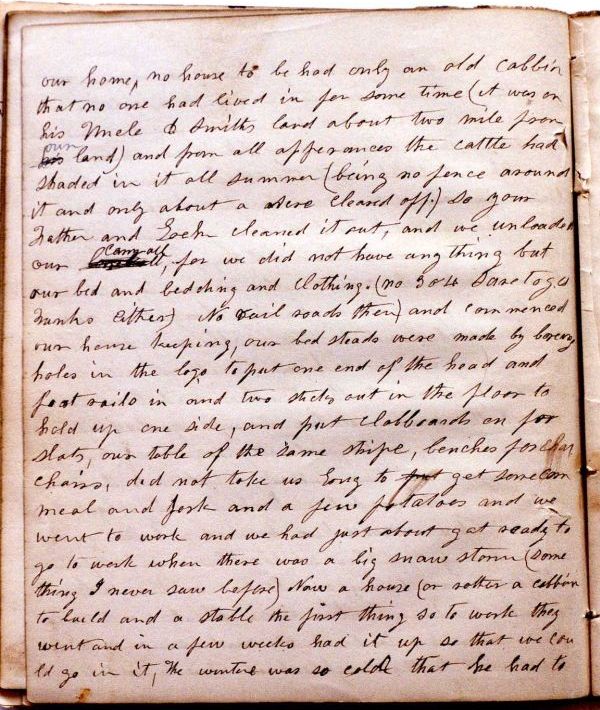 our home, no house to be had only an old cabbin
that no one had lived in for some time (it was on
his Uncle D Smiths land about two mile from
our land) and from all apperances the cattle had
shaded in it all summer (being no fence around
it and only about a acere cleared off.) so your
Father and Zach cleaned it out, and we unloaded
our carry all, for we did not have anything but
our bed and bedding and clothing. (no 3 or 4 Saretoga
Trunks either) No rail roads then) and commenced
our house keeping, our bed steads were made by boreing
holes in the logs to put one end of the head and
foot rails in and two sticks out in the floor to
hold up one side, and put clabboards on for
slats, our table of the same stripe, benches for
chairs, did not take us long to get some corn
meal and pork and a few potatoes and we
went to work and we had just about got ready to
go to work when there was a big snaw storm (some
thing I never saw before) Now a house (or rather a cabbin
to build and a stable the first thing so to work they
went and in a few weeks had it up so that we cou
ld go in it, The winter was so cold that he had to